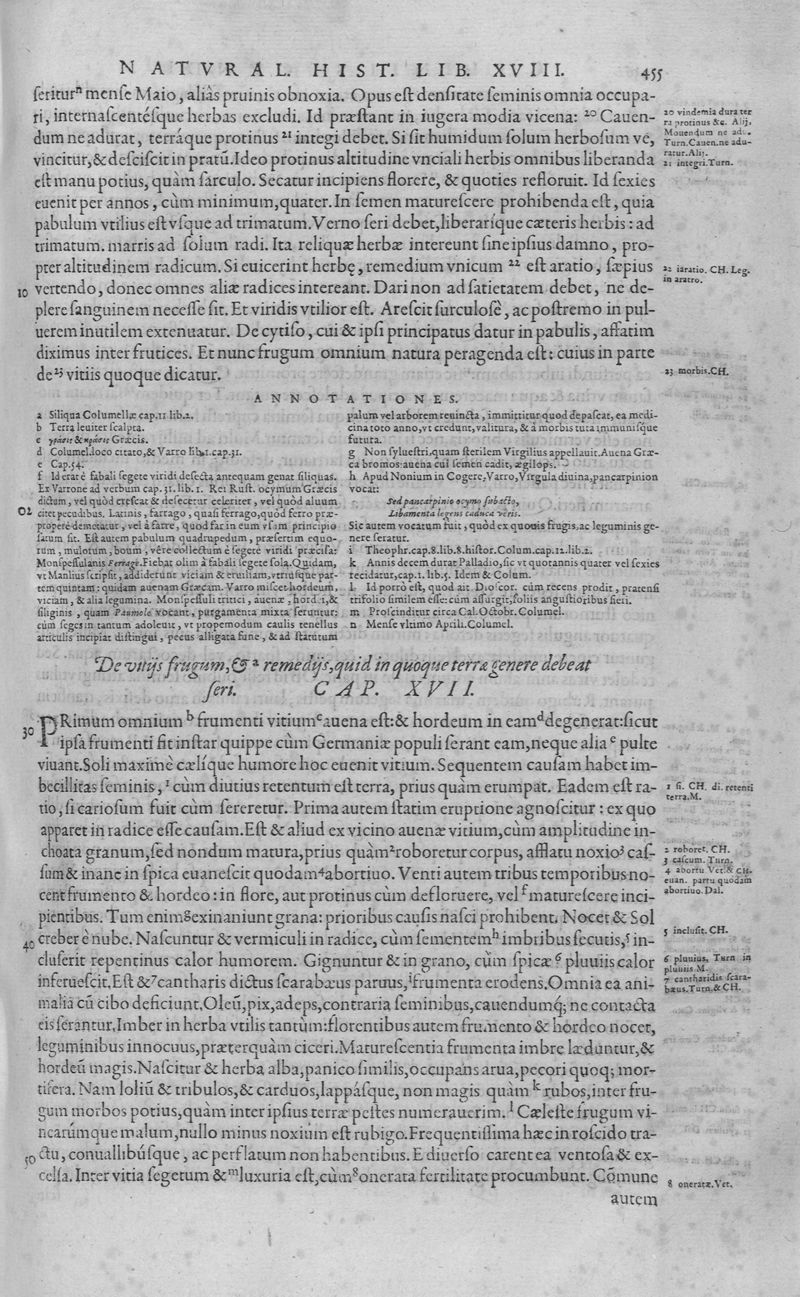 NATVRAL. HIST. LIB. XVIII. 455
ſeriturⁿ menſe Maio, aliàs pruinis obnoxia. Opus eſt denſitate ſeminis omnia occupa-
ri, internaſcentéſque herbas excludi. Id præſtant in iugera modia vicena: ²⁰ Cauen-
dum ne adurat, terráque protinus ²¹ integi debet. Si ſit humidum ſolum herboſum ve,
vincitur, & deſciſcit in pratū. Ideo protinus altitudine vnciali herbis omnibus liberanda
eſt manu potius, quàm ſarculo. Secatur incipiens florere, & quoties refloruit. Id ſexies
euenit per annos, cùm minimum, quater. In ſemen matureſcere prohibenda eſt, quia
pabulum vtilius eſt vſque ad trimatum. Verno ſeri debet, liberaríque cæteris herbis: ad
trimatum. marris ad ſolum radi. Ita reliquæ herbæ intereunt ſine ipſius damno, pro-
pter altitudinem radicum. Si euicerint herbę, remedium vnicum ²² eſt aratio, ſæpius
10 vertendo, donec omnes aliæ radices intereant. Dari non ad ſatietatem debet, ne de-
plere ſanguinem neceſſe ſit. Et viridis vtilior eſt. Areſcit ſurculoſè, ac poſtremo in pul-
uerem inutilem extenuatur. De cytiſo, cui & ipſi principatus datur in pabulis, affatim
diximus inter frutices. Et nunc frugum omnium natura peragenda eſt: cuius in parte
de ²³ vitiis quoque dicatur.
20 vindemia dura ter
r2 protinus &c. Alij,
Mouendum ne adu.
Turn. Cauen. ne adu-
ratur. Alij.
21 integri. Turn.
22 iaratio. CH. Leg.
in aratro.
23 morbis. CH.
ANNOTATIONES.
a Siliqua Columellæ cap. 11 lib. 2.
b Terra leuiter ſcalpta.
c γράσις & κράσις Græcis.
d Columel. loco citato, & Varro lib. 1. cap. 31.
e Cap. 54.
f Id erat è fabali ſegete viridi deſecta antequam genat ſiliquas.
Ex Varrone ad verbum cap. 31. lib. 1. Rei Ruſt. ocymum Græcis
dictum, vel quòd creſcat & deſecetur celeriter, vel quòd aluum
20 citet pecudibus. Latinis, farrago, quaſi ferrago, quòd ferro præ-
properè demetatur, vel à farre, quod far in eum vſum principio
ſatum ſit. Eſt autem pabulum quadrupedum, præſertim equo-
rum, mulorum, boum, vêre collectum è ſegete viridi præciſa:
Monſpeſſulanis Ferrage. Fiebat olim à fabali ſegete ſola. Quidam,
vt Manlius ſcripſit, addiderunt viciam & eruiliam, vtriuſque par-
tem quintam: quidam auenam Græcam. Varro miſcet hordeum,
viciam, & alia legumina. Monſpeſſuli tritici, auenæ, hordei, &
ſiliginis, quam Paumole vocant, purgamenta mixta ſeruntur:
cùm ſeges in tantum adoleuit, vt propemodum caulis tenellus
articulis incipiat diſtingui, pecus alligata fune, & ad ſtatutum
palum vel arborem reuincta, immittitur quod depaſcat, ea medi-
cina toto anno, vt credunt, valitura, & à morbis tuta immuniſque
futura.
g Non ſylueſtri, quam ſterilem Virgilius appellauit. Auena Græ-
ca bromos: auena cui ſemen cadit, ægilops.
h Apud Nonium in Cogere, Varro, Virgula diuina, pancarpinion
vocat:
Sed pancarpinio ocymo ſubactio,
Libamenta legens caduca veris.
Sic autem vocatum fuit, quòd ex quouis frugis, ac leguminis ge-
nere ſeratur.
i Theophr. cap. 8. lib. 8. hiſtor. Colum. cap. 12. lib. 2.
k Annis decem durat Palladio, ſic vt quotannis quater vel ſexies
recidatur, cap. 1. lib. 5. Idem & Colum.
l Id porrò eſt, quod ait Dioſcor. cùm recens prodit, pratenſi
trifolio ſimilem eſſe: cùm aſſurgit, foliis anguſtioribus fieri.
m Proſcinditur circa Cal. Octobr. Columel.
n Menſe vltimo Aprili. Columel.
De vitijs frugum, & ᵃ remedijs, quid in quoque terræ genere debeat
ſeri. CAP. XVII.
30 PRimum omnium ᵇ frumenti vitium ᶜ auena eſt: & hordeum in eam ᵈ degenerat: ſicut
ipſa frumenti ſit inſtar quippe cùm Germaniæ populi ſerant eam, neque alia ᵉ pulte
viuant. Soli maximè cælíque humore hoc euenit vitium. Sequentem cauſam habet im-
becillitas ſeminis, ¹ cùm diutius retentum eſt terra, prius quàm erumpat. Eadem eſt ra-
tio, ſi carioſum fuit cùm ſereretur. Prima autem ſtatim eruptione agnoſcitur: ex quo
apparet in radice eſſe cauſam. Eſt & aliud ex vicino auenæ vitium, cùm amplitudine in-
choata granum, ſed nondum matura, prius quàm ² roboretur corpus, afflatu noxio ³ caſ-
ſum & inane in ſpica euaneſcit quodam ⁴ abortiuo. Venti autem tribus temporibus no-
cent frumento & hordeo: in flore, aut protinus cùm defloruere, vel ᶠ matureſcere inci-
pientibus. Tum enim ᵍ exinaniunt grana: prioribus cauſis naſci prohibent. Nocet & Sol
40 creber è nube. Naſcuntur & vermiculi in radice, cùm ſementem ʰ imbribus ſecutis, ⁵ in-
cluſerit repentinus calor humorem. Gignuntur & in grano, cùm ſpicæ ⁶ pluuiis calor
inferueſcit. Eſt & ⁷ cantharis dictus ſcarabæus paruus, ⁱ frumenta erodens. Omnia ea ani-
malia cū cibo deficiunt. Oleū, pix, adeps, contraria ſeminibus, cauendumq; ne contacta
eis ſerantur. Imber in herba vtilis tantùm: florentibus autem frumento & hordeo nocet,
leguminibus innocuus, præterquàm ciceri. Matureſcentia frumenta imbre læduntur, &
hordeū magis. Naſcitur & herba alba, panico ſimilis, occupans arua, pecori quoq; mor-
tifera. Nam loliū & tribulos, & carduos, lappáſque, non magis quàm ᵏ rubos, inter fru-
gum morbos potius, quàm inter ipſius terræ peſtes numerauerim. ˡ Cæleſte frugum vi-
nearúmque malum, nullo minus noxium eſt rubigo. Frequentiſſima hæc in roſcido tra-
50 ctu, conuallibúſque, ac perflatum non habentibus. E diuerſo carent ea ventoſa & ex-
celſa. Inter vitia ſegetum & ᵐ luxuria eſt, cùm ⁸ onerata fertilitate procumbunt. Cōmune
autem
1 ſi. CH. di. retenti
terra. M.
2 roboret. CH.
3 caſcum. Turn.
4 abortu Vet. & CH.
euan. partu quodam
abortiuo. Dal.
5 incluſit. CH.
6 pluuius, Turn in
pluuiis M.
7 cantharidis ſcara-
bæus. Turn. & CH.
8 oneratæ. Vet.